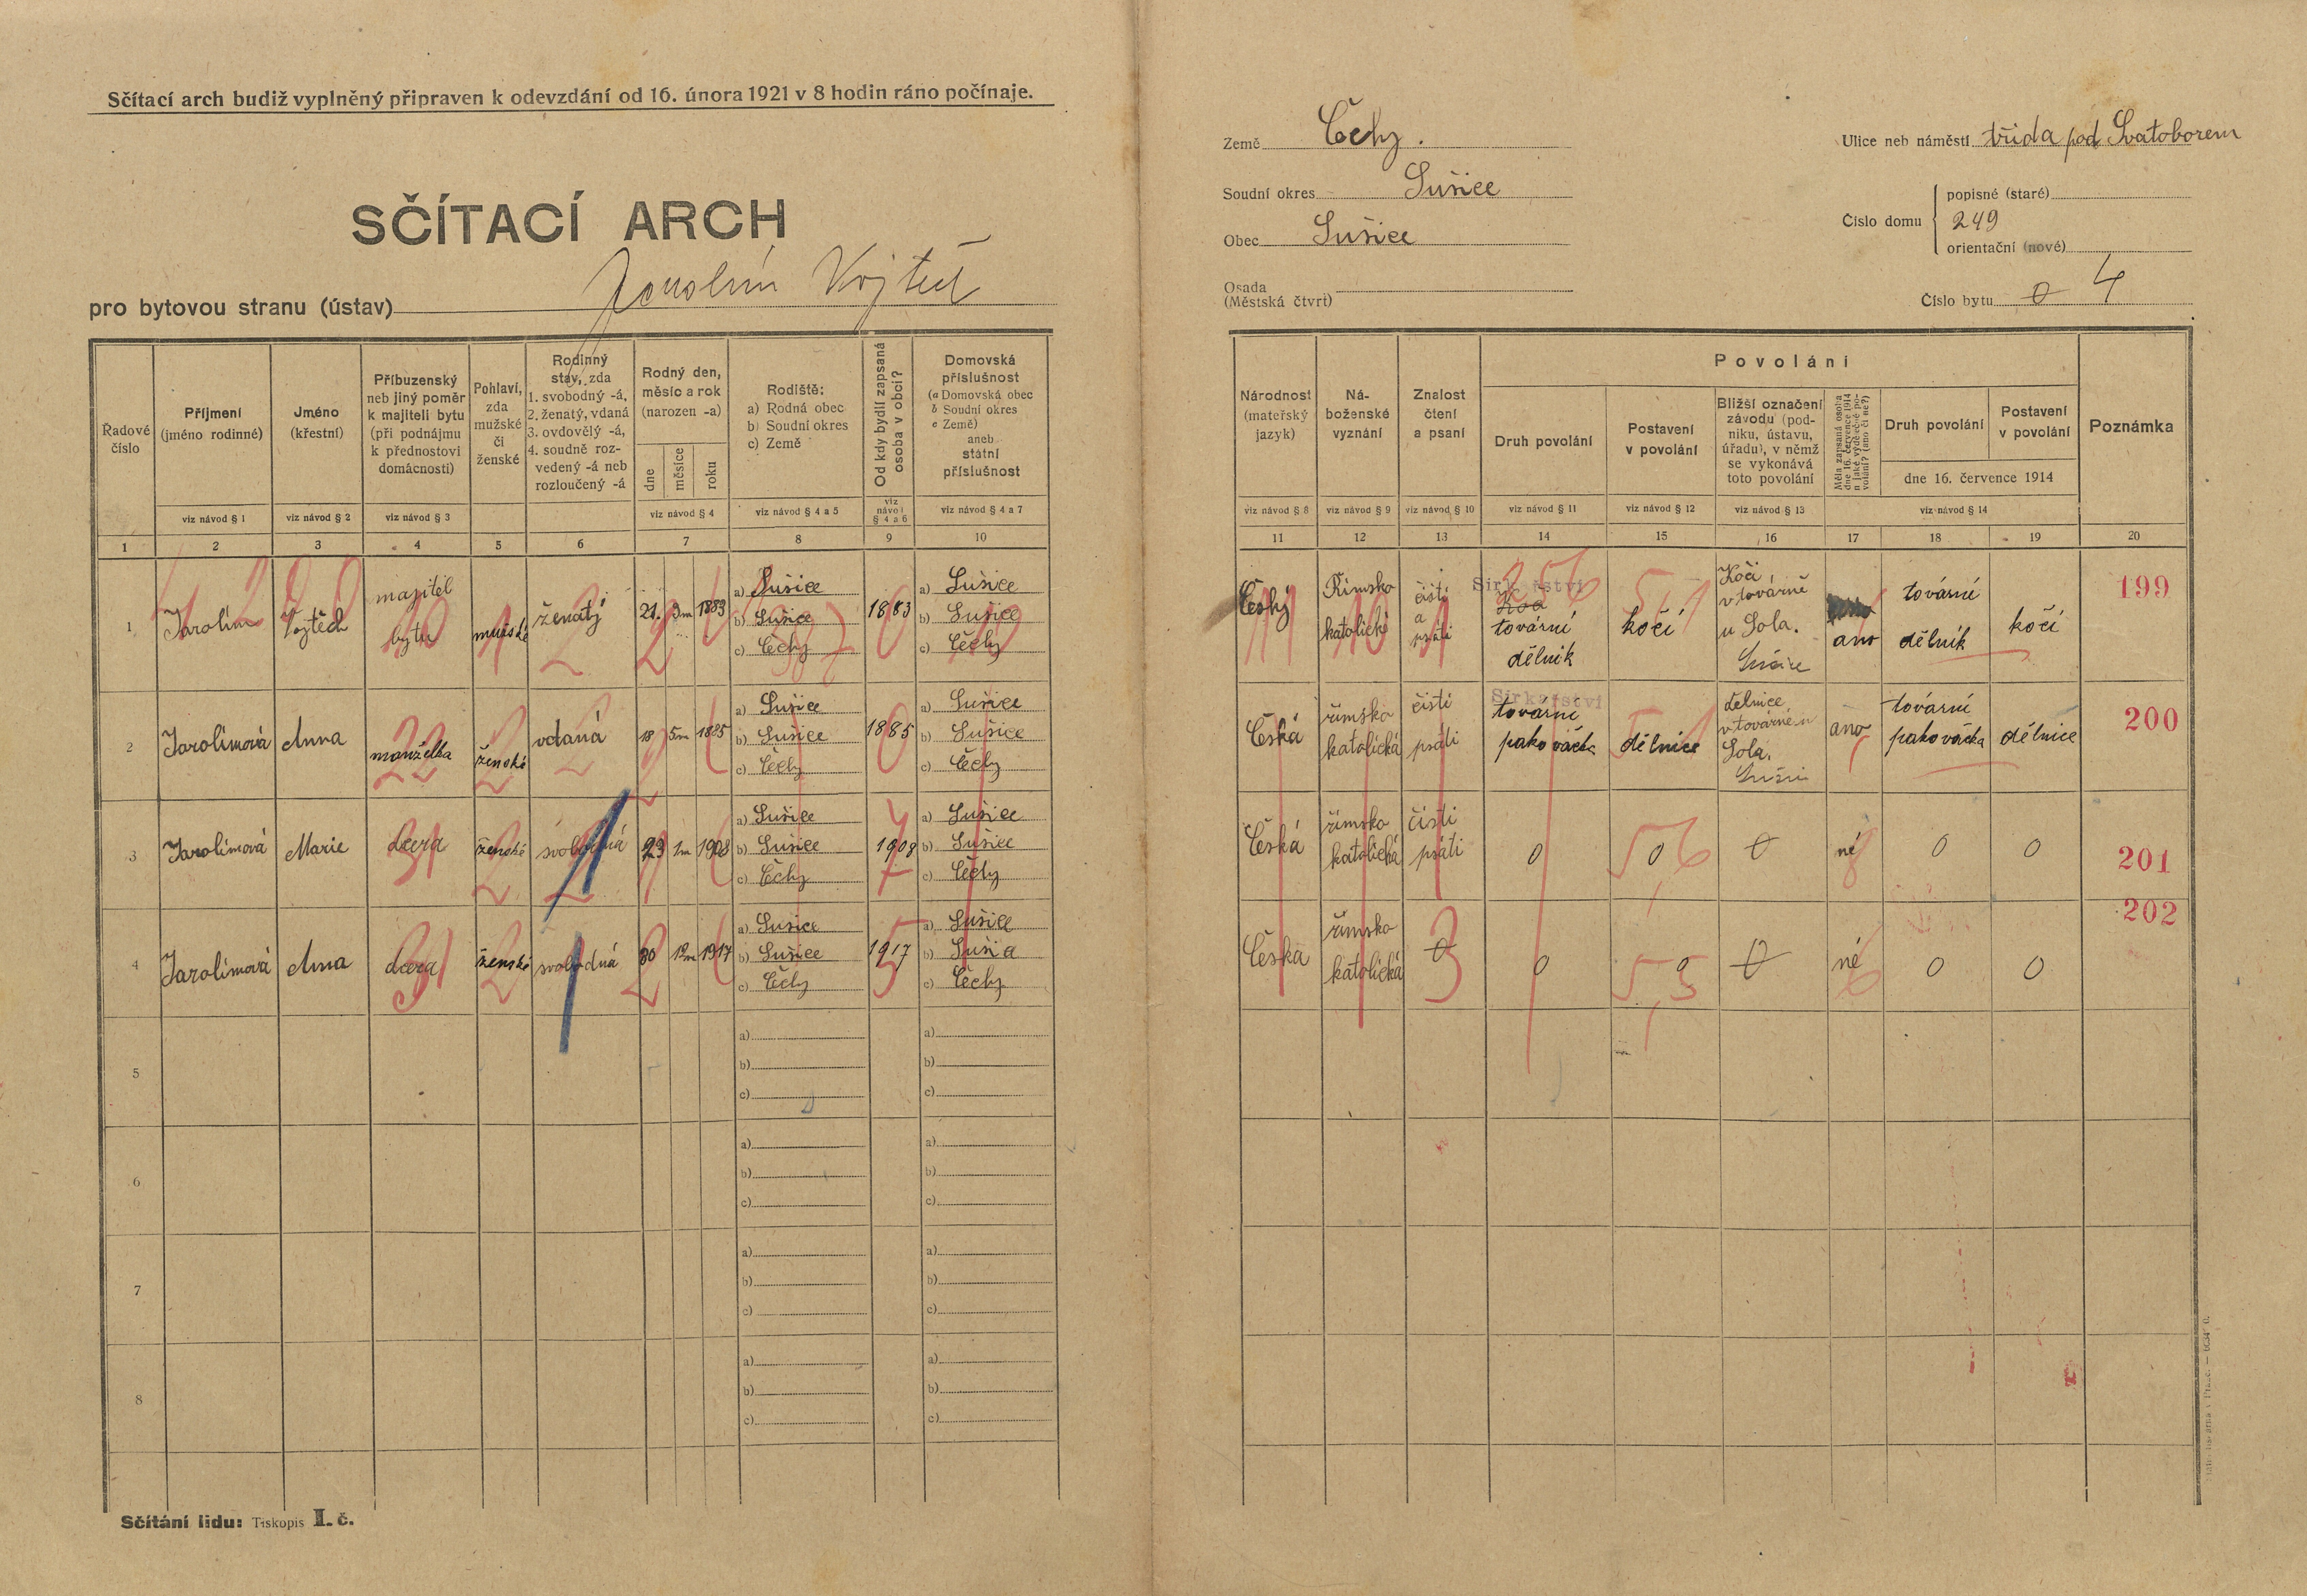 Sčítací arch budiž vyplněný připraven k odevzdání od 16. února 1921 v 8 hodin ráno počínaje.
SČÍTACÍ ARCH
pro bytovou stranu (ústav) Jarolím Vojtěch
Řadové číslo
Příjmení (jméno rodinné)
Jméno (křestní)
Příbuzenský neb jiný poměr k majiteli bytu (při podnájmu k přednostovi domácnosti)
Pohlaví, zda mužské či ženské
Rodinný stav, zda
1. svobodný -á,
2. ženatý, vdaná
3. ovdovělý -á,
4. soudně rozvedený -á neb rozloučený -á
Rodný den, měsíc a rok (narozen -a)
dne měsíce roku
Rodiště:
a) Rodná obec
b) Soudní okres
c) Země
Od kdy bydlí zapsaná osoba v obci?
Domovská příslušnost
(a Domovská obec
b Soudní okres
c Země)
aneb státní příslušnost
viz návod § 1 viz návod § 2 viz návod § 3 viz návod § 4 viz návod § 4 a 5 viz návod § 4 a 6 viz návod § 4 a 7
1 2 3 4 5 6 7 8 9 10
1 Jarolím Vojtěch majitel bytu mužské ženatý 21. 3m 1883
a) Sušice
b) Sušice
c) Čechy
1883
a) Sušice
b) Sušice
c) Čechy
2 Jarolímová Anna manželka ženské vdaná 18 5m 1885
a) Sušice
b) Sušice
c) Čechy
1885
a) Sušice
b) Sušice
c) Čechy
3 Jarolímová Marie dcera ženské svobodná 23 1m 1908
a) Sušice
b) Sušice
c) Čechy
1908
a) Sušice
b) Sušice
c) Čechy
4 Jarolímová Anna dcera ženské svobodná 30 12m 1917
a) Sušice
b) Sušice
c) Čechy
1917
a) Sušice
b) Sušice
c) Čechy
5
a) a)
b) b)
c) c)
6
a) a)
b) b)
c) c)
7
a) a)
b) b)
c) c)
8
a) a)
b) b)
c) c)
Sčítání lidu: Tiskopis I. č.
Země Čechy.
Soudní okres Sušice
Obec Sušice
Osada
(Městská čtvrť)
Ulice neb náměstí třída pod Svatoborem
Číslo domu
popisné (staré)
249
orientační (nové)
Číslo bytu 0 4
Národnost (mateřský jazyk)
Náboženské vyznání
Znalost čtení a psaní
Povolání
Druh povolání
Postavení v povolání
Bližší označení závodu (podniku, ústavu, úřadu), v němž se vykonává toto povolání
Měla zapsaná osoba dne 16. července 1914 nějaké výdělečné povolání? (ano či ne?)
Druh povolání
Postavení v povolání
dne 16. července 1914
Poznámka
viz návod § 8 viz návod § 9 viz návod § 10 viz návod § 11 viz návod § 12 viz návod § 13 viz návod § 14
11 12 13 14 15 16 17 18 19 20
Český Římsko katolické čísti a psáti
Sirkařství
256
tovární dělník
kočí
Kočí v továrně u Sola. Sušice
ano
tovární dělník
kočí
199
Česká římsko katolická čísti psáti
Sirkařství
tovární pakovačka
dělnice
dělnice v továrně u Sola.
ano
tovární pakovačka
dělnice
200
Česká římsko katolická čísti psáti 0 0 0 né 0 0
201
Česká římsko katolická 0 0 0 0 né 0 0
202